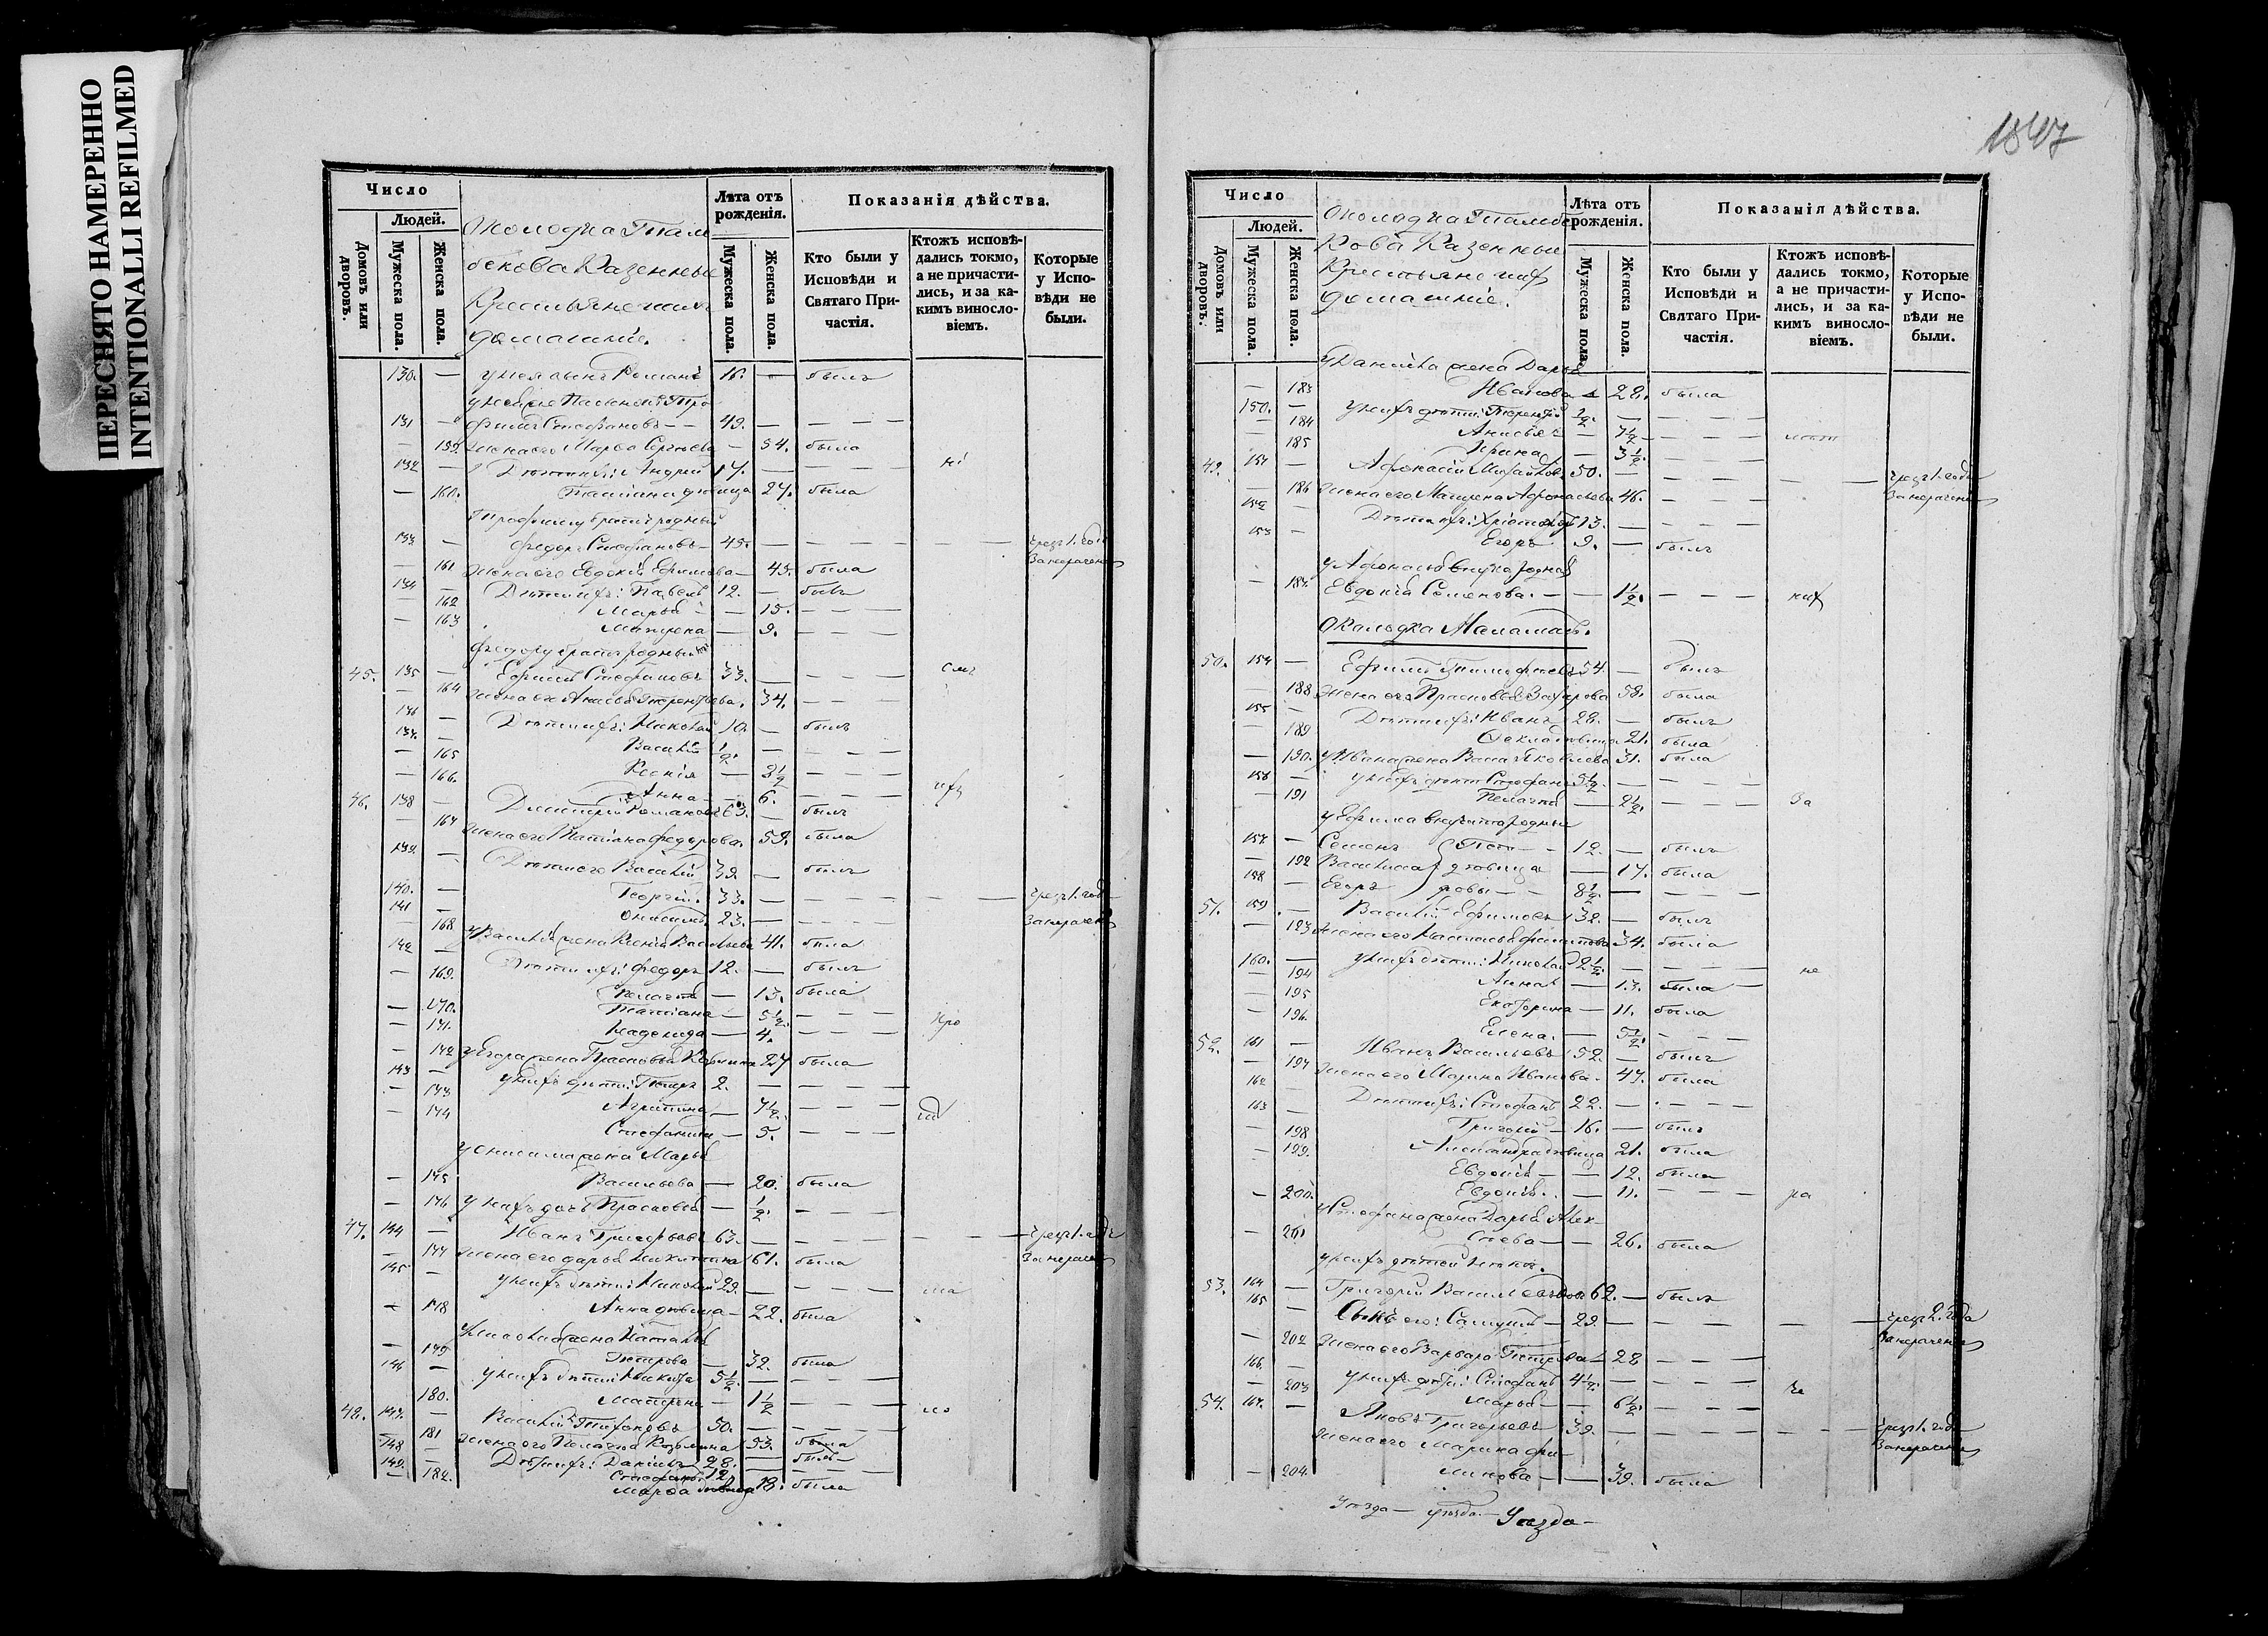 ПЕРЕСНЯТО НАМЕРЕННО
INTENTIONALLI REFILMED
Число
Людей.
Домовъ или дворовъ.
Мужеска пола.
Женска пола.
Околодка Тали
бекова Казенные
Крестьяне и ихъ
домашніе.
Лѣта отъ рожденія.
Мужеска пола.
Женска пола.
Показанія дѣйства.
Кто были у Исповѣди и Святаго При-частія.
Ктожъ исповѣ-дались токмо, а не причасти-лись, и за ка-кимъ винослo-віемъ.
Которые у Испо-вѣди не были.
130. — у нея сынъ Романъ 16. — былъ
131 — филъ Стефановъ 49. — — — —
159. жена его Марѳа Сергѣева — 54. была
132 — Дѣти ихъ: Андрей 17. — — — —
— 160. Татіана дѣвица 27. была
Трофиму братъ родный
133 — Федоръ Стефановъ 45. — — — — чрезъ 1. годъ
— 161 жена его Евдокія Ефимова — 45. была За нерачен
134 — Дѣти ихъ: Павелъ 12. — былъ
— 162 Марья — 15. — — —
— 163 Матрена — 9. — — —
Федору братъ родный
45. 135 — Ефимъ Стефановъ 33. — — — —
— 164 жена его Анисья Терентьева. 34. — — —
136 — Дѣти ихъ: Николай 10. — былъ
137. — Василій ½. — — — —
— 165 Ксенія — 3½ — — —
— 166. Анна — 6. — — —
46. 138 — Дмитрій Романовъ 63. — былъ
— 167 жена его Татіана Федорова. 59. была
139. — Дѣти его Василій 39. — былъ
140. — Георгій. 33. — — — — чрезъ 1. год
141 — Онисимъ. 23. — — — — За нерачен
— 168 у Василія жена Ксенія Васильева 41. была
142 — Дѣти ихъ: Федоръ 12. — былъ
— 169. Пелагія — 13. была
— 170. Татіана — 5½. — — —
— 171. Надежда — 4. — — —
— 172 у Егора жена Прасковья 27 была
143 — у нихъ дѣти: Петръ 2. — — — —
— 173 Агрипина — 7½. — — —
— 174 Стефанида — 5. — — —
у Онисима жена Марья
— 175 Васильева — 20. была
— 176 у нихъ дочь Прасковья — ½. — —
47. 144 — Иванъ Григорьевъ 63. — — — — чрезъ 1. годъ
— 177 жена его Дарья Никитина 61. была За нерачен
145 — у нихъ дѣти: Николай 29. — — — —
— 178 Анна дѣвица — 22. была
у Николая жена Наталья
— 179 Петрова — 32. была
146 — у нихъ дѣти: Никита 5½. — — — —
180. Матрена — 1½ — — —
48. 147. — Василій 50. — — — —
181 жена его Пелагія Козмина 53. была
148 — Дѣти ихъ: Даніилъ 28. — былъ
149. — Стефанъ 12. — — —
182. Марѳа дѣвица 18. была
1847
Число
Людей.
Домовъ или дворовъ.
Мужеска пола.
Женска пола.
Околодка Талибе
кова Казенные
Крестьяне и ихъ
домашніе.
Лѣта отъ рожденія.
Мужеска пола.
Женска пола.
Показанія дѣйства.
Кто были у Исповѣди и Святаго При-частія.
Ктожъ исповѣ-дались токмо, а не причасти-лись, и за ка-кимъ винослo-віемъ.
Которые у Испо-вѣди не были.
у Даніила жена Дарья
— 183 Иванова — 28. была
150. — у нихъ дѣти: Терентій ½. — — — —
— 184 Анисья — 7½ — — —
— 185 Ирина — 3½. — — —
49. 151 — Афонасій Михайловъ 50. — — — — чрезъ 1. годъ
— 186 жена его Матрена Афонасьева 46. — — — За нерачен
152 — Дѣти ихъ: 13. — — — —
153 — Егоръ 9. — былъ
у Афонасья внука родная
— 187. Евдокія Семенова. — 1½. — — — ихъ
Околодка
50. 154 — Ефимъ Тимофеевъ 54. — былъ
— 188 жена его Прасковья Захарова 58. была
155 — Дѣти ихъ: Иванъ 28. — былъ
— 189 Ѳекла дѣвица 21. была
— 190. у Ивана жена Васса Яковлева 31. была
156 — у нихъ дѣти Стефанъ 5½. — — — —
— 191 Пелагія — 2½. — — — За
у Ефима внучата родные
157. — Семенъ Пет 12. — былъ
— 192 Василиса дѣвица — 17. была
158 — Егоръ ровы 8½. — — — —
51. 159. — Василій Ефимовъ 32. — былъ
— 193 жена его Наталья Филиппова 34. была
160. — у нихъ дѣти: Николай 2½. — — — — не
— 194 Анна — 13. была
— 195 Екатерина — 11. была
— 196. Елена. — 5½. — — —
52. 161 — Иванъ Васильевъ 52. — былъ
— 197 жена его Марина Иванова. 47. была
162 — Дѣти ихъ: Стефанъ 22. — — — —
163 — Григорій 16. — былъ
— 198 Александра дѣвица 21. была
— 199. Евдокія — 12. была
— 200. Евдокія. — 11. — — — ра
у Стефана жена Дарья Алек-
— 201 сѣева — 26. была
у нихъ дѣтей нѣтъ.
53. 164 — Григорій Васильевъ 62. — былъ
165 — Сынъ его: Самуилъ 29. — — — — чрезъ 2. года
— 202 жена его Варвара Петрова 28 — — — За нерачен
166. — у нихъ дѣти: Стефанъ 4½. — — — —
— 203 Марья — 6½. — — — че
54. 167. — Яковъ Григорьевъ 39. — — — — чрезъ 1. год
жена его Марина Фи- За нерачен
— 204. липова — 39. была
Уѣзда — уѣзда. — Уѣзда —